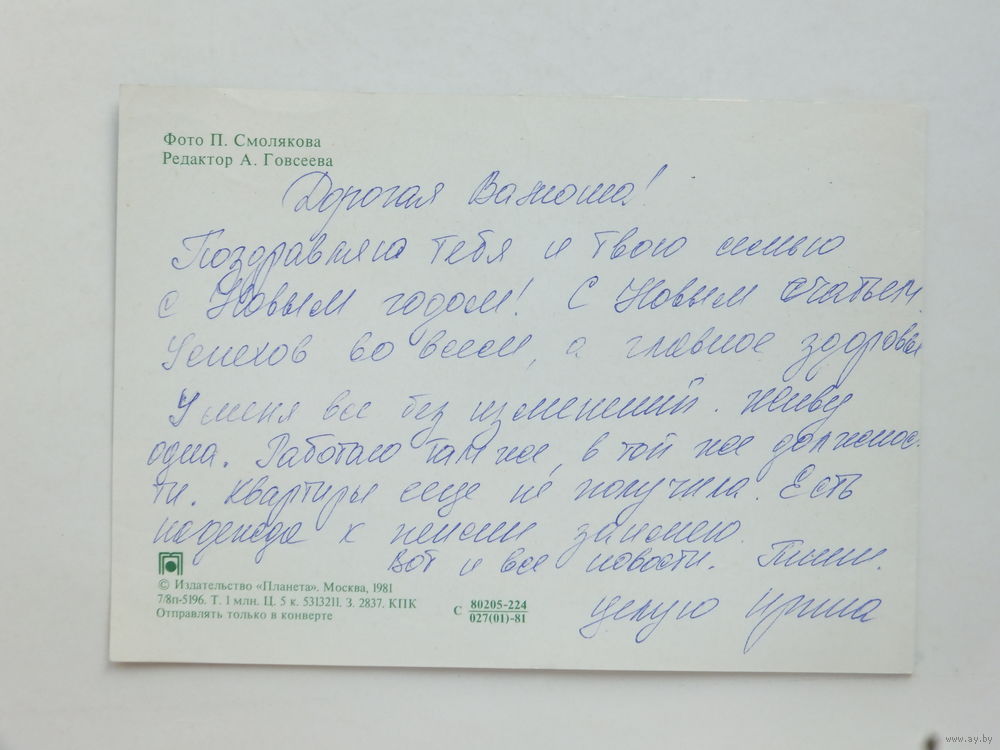 Фото П. Смолякова
Редактор А. Говсеева
Дорогая Ванюша!
Поздравляю тебя и твою семью
с Новым годом! С Новым счастьем
Успехов во всем, а главное здоровья
У меня все без изменений. Живу
одна. Работаю там же, в той же должнос-
ти. Квартиры еще не получила. Есть
надежда к пенсии займею.
Вот и все новости. Пиши.
целую Ирина
© Издательство «Планета». Москва, 1981
7/8п-5196. Т. 1 млн. Ц. 5 к. 5313211. З. 2837. КПК
Отправлять только в конверте
С 80205-224
027(01)-81
www.ay.by